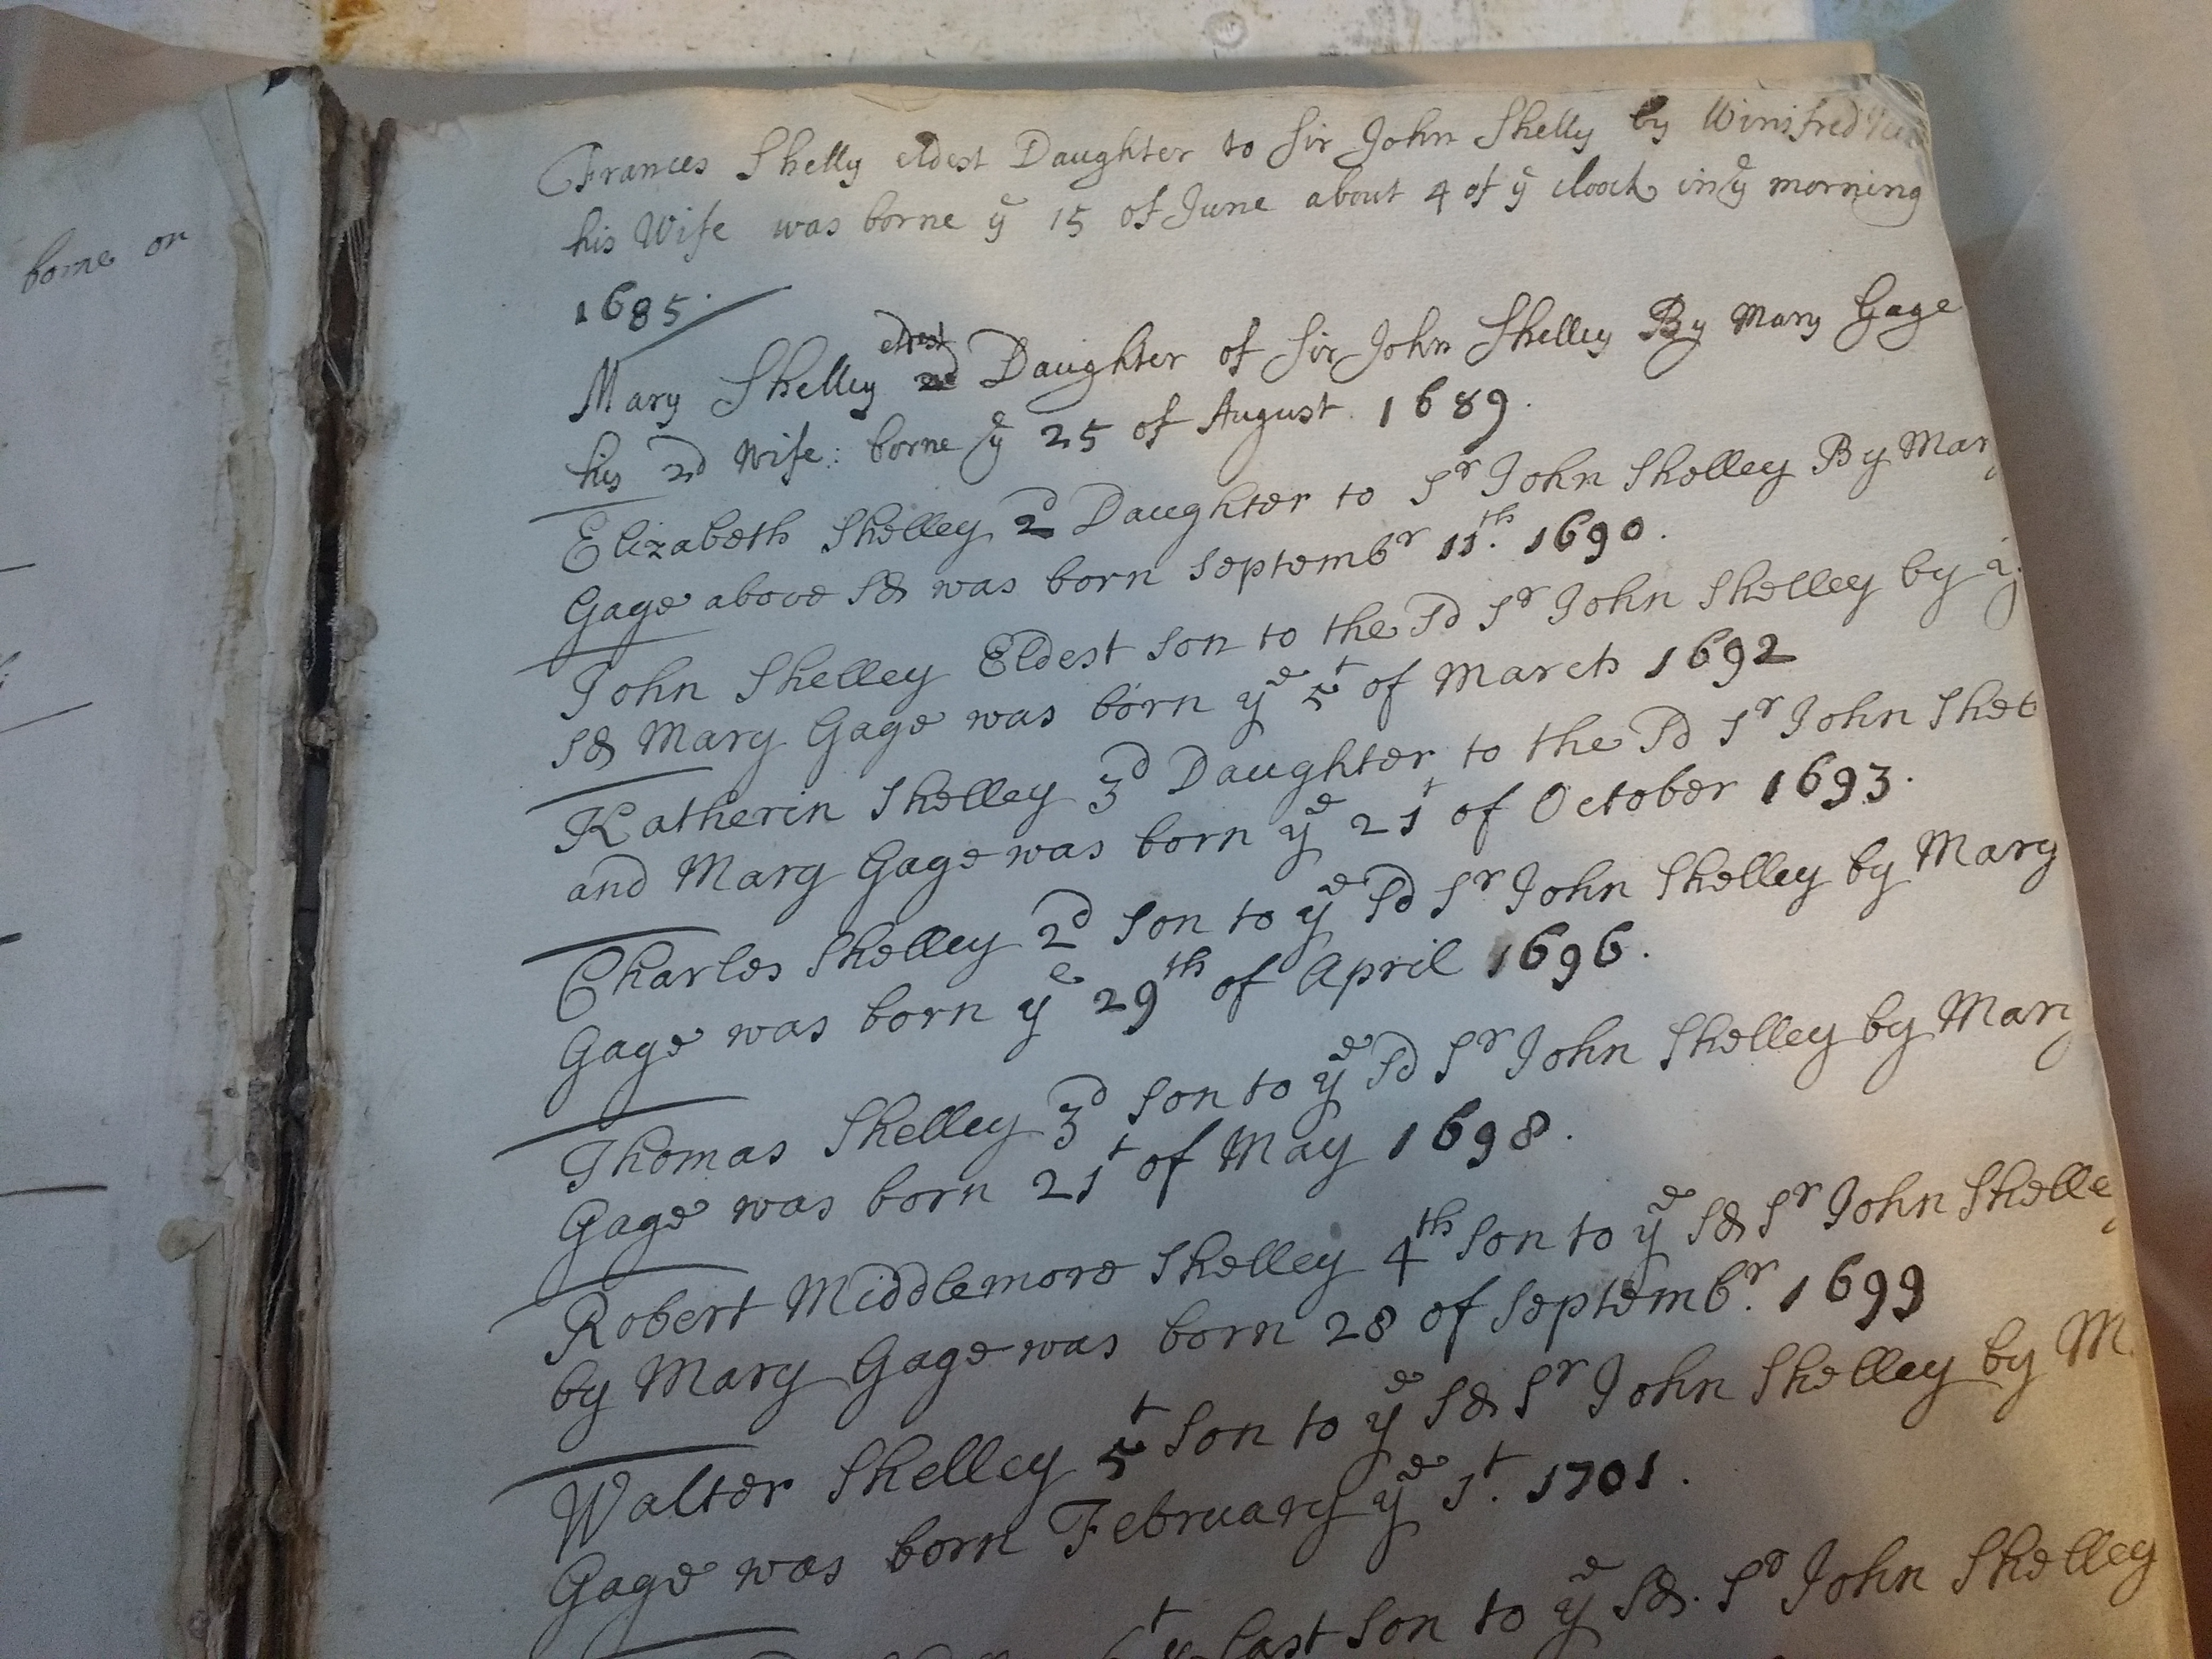 borne on
Frances Shelly eldest Daughter to Sir John Shelly by Winifred
his Wife was borne ye 15 of June about 4 of ye clock in ye morning
1685.
eldest
Mary Shelley 2d Daughter of Sir John Shelley By Mary Gage
his 2d Wife: borne ye 25 of August 1689.
Elizabeth Shelley 2d Daughter to Sr John Shelley By Mary
Gage above Sd was born Septembr 11th. 1690.
John Shelley Eldest son to the Sd Sr John Shelley by
Sd Mary Gage was born ye 5t of March 1692
Katherin Shelley 3d Daughter to the Sd Sr John Shel
and Mary Gage was born ye 21t of October 1693.
Charles Shelley 2d son to ye Sd Sr John Shelley by Mary
Gage was born ye 29th of April 1696.
Thomas Shelley 3d son to ye Sd Sr John Shelley by Mary
Gage was born 21t of May 1698.
Robert Middlemore Shelley 4th son to ye Sd Sr John Shelley
by Mary Gage was born 28 of Septembr. 1699
Walter Shelley 5t son to ye Sd Sr John Shelley by M
Gage was born February ye 1t. 1701.
last son to ye Sd. Sr John Shelley